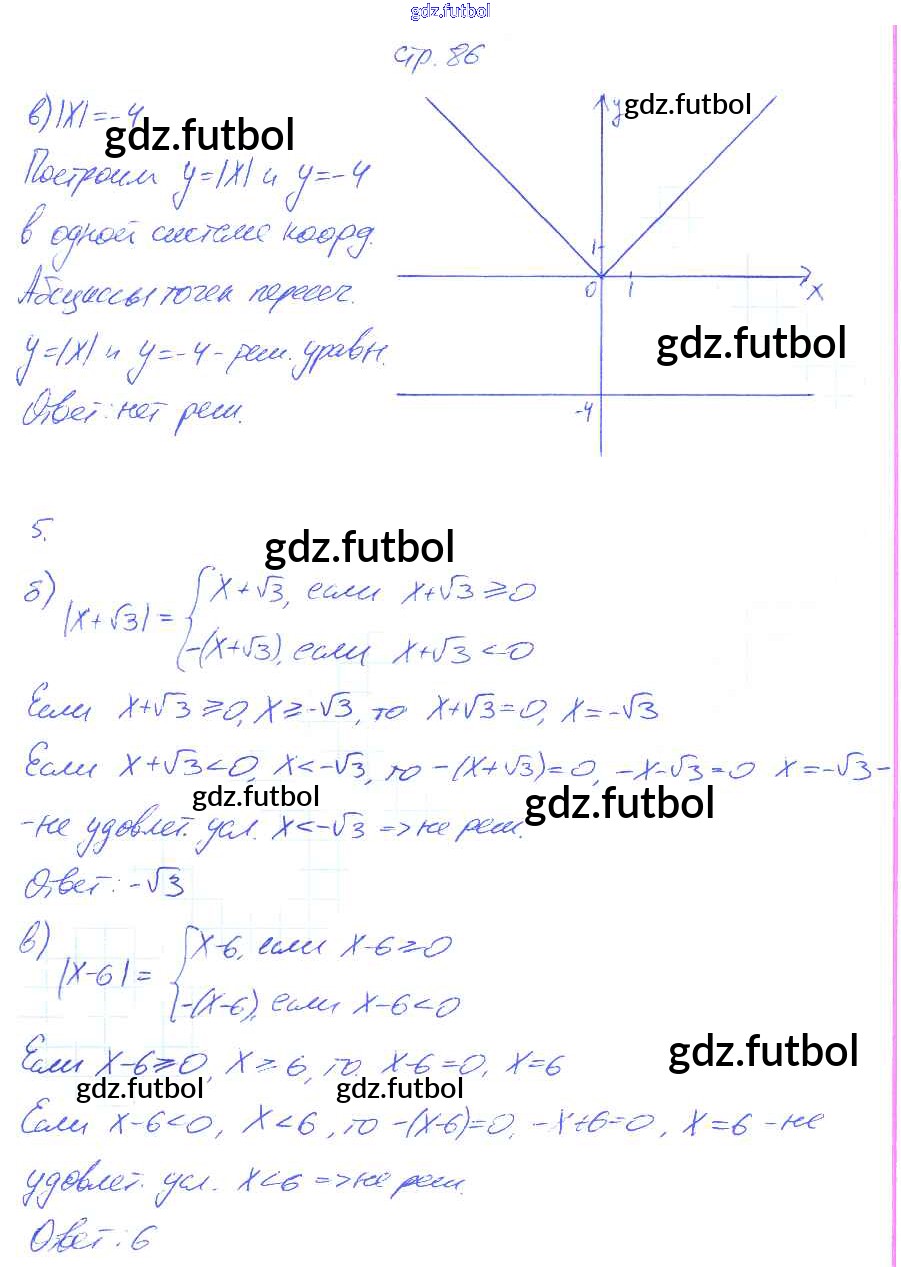 gdz.futbol
стр. 86
в) |x| = -4
gdz.futbol
Построим y=|x| и y=-4
в одной системе коорд.
Абсциссы точек пересеч.
y=|x| и y=-4 - реш. уравн.
Ответ: нет реш.
y
gdz.futbol
1
0 1 x
gdz.futbol
-4
5.
gdz.futbol
б) |x+√3| = { x+√3, если x+√3 ≥ 0
-(x+√3), если x+√3 < 0
Если x+√3 ≥ 0, x ≥ -√3, то x+√3 = 0, x = -√3
Если x+√3 < 0, x < -√3, то -(x+√3) = 0, -x-√3 = 0 x = -√3 -
gdz.futbol gdz.futbol
- не удовлет. усл. x < -√3 => не реш.
Ответ: -√3
в) |x-6| = { x-6, если x-6 ≥ 0
-(x-6), если x-6 < 0
Если x-6 ≥ 0, x ≥ 6, то x-6 = 0, x = 6
gdz.futbol
gdz.futbol gdz.futbol
Если x-6 < 0, x < 6, то -(x-6) = 0, -x+6 = 0, x = 6 - не
удовлет. усл. x < 6 => не реш.
Ответ: 6